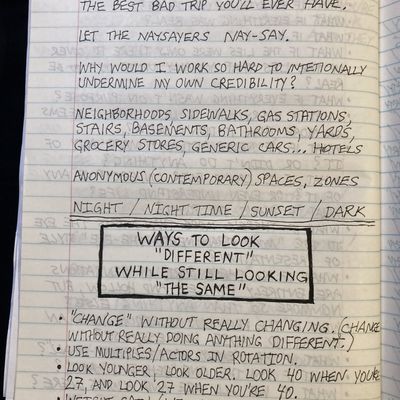 THE BEST BAD TRIP YOU'LL EVER HAVE.
LET THE NAYSAYERS NAY-SAY.
WHY WOULD I WORK SO HARD TO INTETIONALLY
UNDERMINE MY OWN CREDIBILITY?
NEIGHBORHOODS, SIDEWALKS, GAS STATIONS,
STAIRS, BASEMENTS, BATHROOMS, YARDS,
GROCERY STORES, GENERIC CARS... HOTELS
ANONYMOUS (CONTEMPORARY) SPACES, ZONES
NIGHT / NIGHT TIME / SUNSET / DARK
WAYS TO LOOK
"DIFFERENT"
WHILE STILL LOOKING
"THE SAME"
• "CHANGE" WITHOUT REALLY CHANGING. (CHANGE
WITHOUT REALLY DOING ANYTHING DIFFERENT.)
• USE MULTIPLES/ACTORS IN ROTATION.
• LOOK YOUNGER, LOOK OLDER. LOOK 40 WHEN YOU'RE
27, AND LOOK 27 WHEN YOU'RE 40.